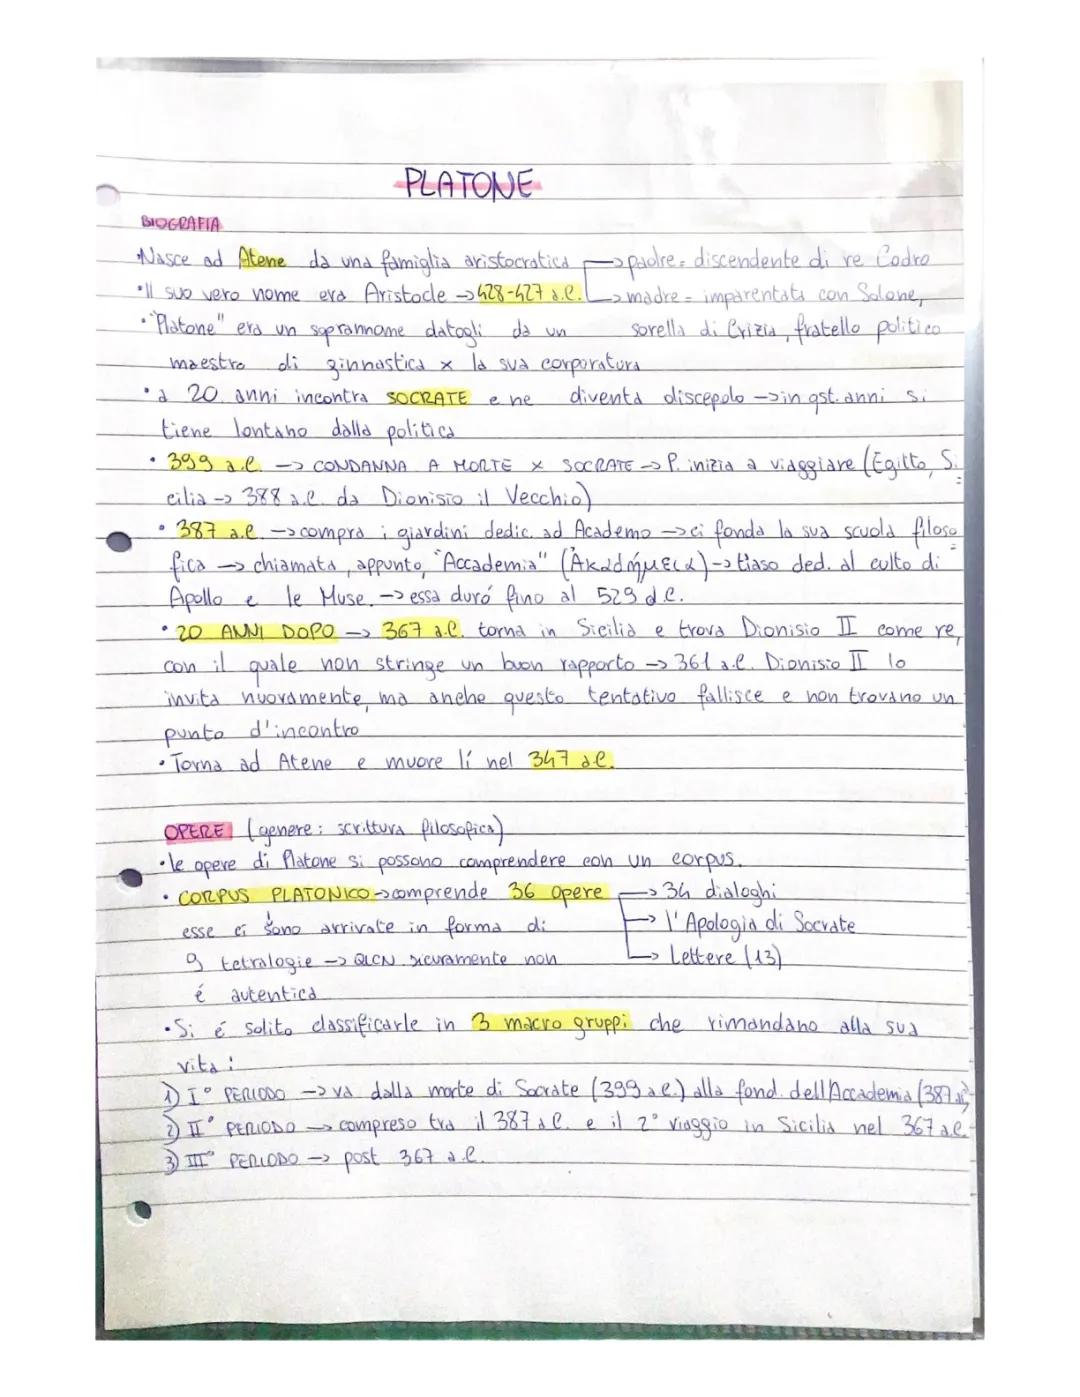 PLATONE
BIOGRAFIA
•Nasce ad Atene da una famiglia aristocratica → padre = discendente di re Codro
•Il suo vero nome era Aristocle → 428-427 a.C. → madre = imparentata con Solone,
•"Platone" era un soprannome datogli da un sorella di Crizia, fratello politico
maestro di ginnastica x la sua corporatura
•a 20 anni incontra SOCRATE e ne diventa discepolo → in qst. anni si
tiene lontano dalla politica
• 399 a.C. → CONDANNA A MORTE x SOCRATE → P. inizia a viaggiare (Egitto, Si
cilia → 388 a.C. da Dionisio il Vecchio)
• 387 a.C. → compra i giardini dedic. ad Academo → ci fonda la sua scuola filoso
fica → chiamata, appunto, "Accademia" (Ἀκαδήμεια) → tiaso ded. al culto di
Apollo e le Muse. → essa duró fino al 529 d.C.
• 20 ANNI DOPO → 367 a.C. torna in Sicilia e trova Dionisio II come re,
con il quale non stringe un buon rapporto → 361 a.C. Dionisio II lo
invita nuovamente, ma anche questo tentativo fallisce e non trovano un
punto d'incontro
• Torna ad Atene e muore lí nel 347 a.C.
OPERE (genere: scrittura filosofica)
•le opere di Platone si possono comprendere con un corpus.
• CORPUS PLATONICO → comprende 36 opere → 34 dialoghi
esse ci sono arrivate in forma di → l'Apologia di Socrate
9 tetralogie → QLCN sicuramente non → Lettere (13)
é autentica
•Si é solito classificarle in 3 macro gruppi che rimandano alla sua
vita:
1) I° PERIODO → va dalla morte di Socrate (399 a.C.) alla fond. dell'Accademia (387 a.C.)
2) II° PERIODO → compreso tra il 387 a.C. e il 2° viaggio in Sicilia nel 367 a.C.
3) III° PERIODO → post 367 a.C.